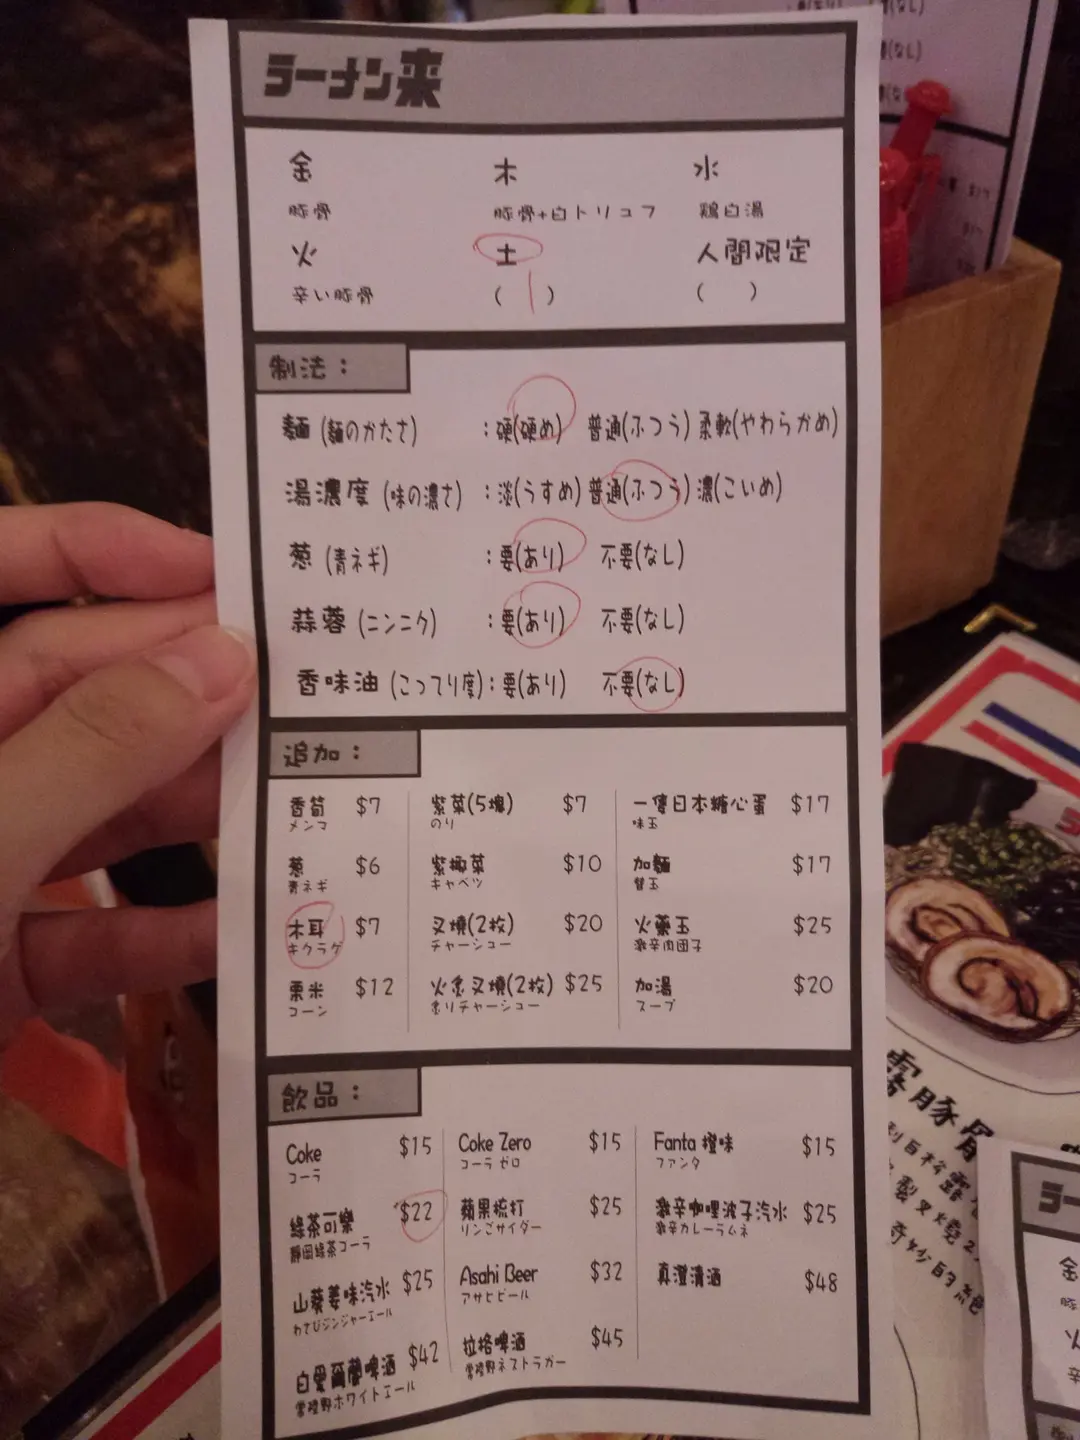 ラーメン来
金 木 水
豚骨 豚骨+白トリュフ 鶏白湯
火 土 人間限定
辛い豚骨 ( | ) ( )
制法：
麵 (麺のかたさ) ：硬(硬め) 普通(ふつう) 柔軟(やわらかめ)
湯濃度 (味の濃さ) ：淡(うすめ) 普通(ふつう) 濃(こいめ)
葱 (青ネギ) ：要(あり) 不要(なし)
蒜蓉 (ニンニク) ：要(あり) 不要(なし)
香味油 (こってり度)：要(あり) 不要(なし)
追加：
香筍 $7 紫菜(5塊) $7 一隻日本糖心蛋 $17
メンマ のり 味玉
葱 $6 紫椰菜 $10 加麵 $17
青ネギ キャベツ 替玉
木耳 $7 叉燒(2枚) $20 火藥玉 $25
キクラゲ チャーシュー 激辛肉団子
粟米 $12 火炙叉燒(2枚) $25 加湯 $20
コーン 炙りチャーシュー スープ
飲品：
Coke $15 Coke Zero $15 Fanta 橙味 $15
コーラ コーラ ゼロ ファンタ
綠茶可樂 $22 蘋果梳打 $25 激辛咖哩波子汽水 $25
静岡緑茶コーラ リンごサイダー 激辛カレーラムネ
山葵姜味汽水 $25 Asahi Beer $32 真澄清酒 $48
わさびジンジャーエール アサヒビール
白愛爾蘭啤酒 $42 拉格啤酒 $45
常陸野ホワイトエール 常陸野ネストラガー
霧豚骨